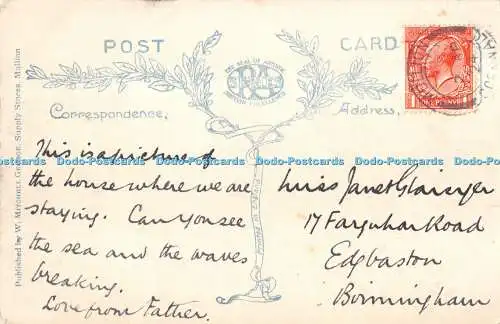 POST CARD
THE SEAL OF ARTISTIC EXCELLENCE
Correspondence. Address.
This is a picture of
the house where we are
staying. Can you see
the sea and the waves
breaking.
Love from Father.
Miss Janet Glaisyer
17 Farquhar Road
Edgbaston
Birmingham
Published by W. Mitchell George, Supply Stores, Mullion
Dodo-Postcards Dodo-Postcards Dodo-Postcards Dodo-Postcards Dodo-Postcards Dodo-Postcards Dodo-Postcards